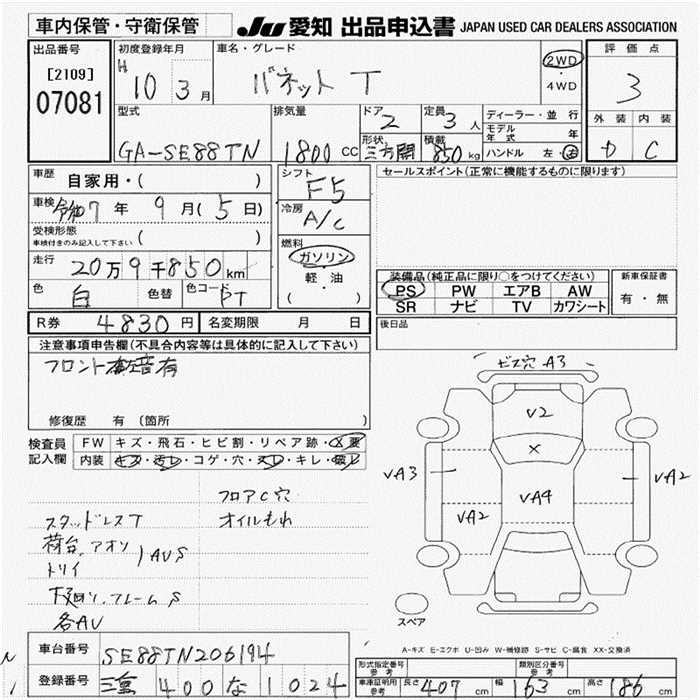 車内保管・守衛保管
JU 愛知 出品申込書 JAPAN USED CAR DEALERS ASSOCIATION
出品番号
[2109]
07081
初度登録年月
H 10 3 月
車名・グレード
バネット T
2WD
・
4WD
評価点
3
外装 内装
D C
型式
GA-SE88TN
排気量
1800 cc
ドア
2
形状
三方開
定員
3 人
積載
850 kg
ディーラー・並行
モデル年式 年
ハンドル 左・右
車歴
自家用・( )
車検 令和7 年 9 月( 5 日)
受検形態
車検付きのみ記入して下さい ( )
走行
20万9千850km
色
白
色替
色コード
PT
シフト
F5
冷房
A/C
燃料
ガソリン
軽・油
( ・ )
セールスポイント(正常に機能するものに限ります)
装備品(純正品に限り○をつけてください)
PS PW エアB AW
SR ナビ TV カワシート
新車保証書
有・無
後日品
R券 4830 円 名変期限 月 日
注意事項申告欄(不具合内容等は具体的に記入して下さい)
フロント 音有
修復歴 有 (箇所 )
検査員
記入欄
FW キズ・飛石・ヒビ割・リペア跡・X要
内装 キズ・汚レ・コゲ・穴・スレ・キレ・破レ
フロアC穴
スタッドレスT
オイルもれ
荷台.アオリ
トリイ
AVS
下廻り.フレームS
各AV
ビス穴 A3
V2
X
VA3
VA2
VA4
VA2
スペア
A-キズ E-エクボ U-凹み W-補修跡 S-サビ C-腐食 XX-交換済
車台番号 SE88TN206194
登録番号 三重 400 な 1024
形式指定番号
参考
類別区分番号
参考
車庫証明用
参考
長さ 407 cm 幅 163 cm 高さ 186 cm